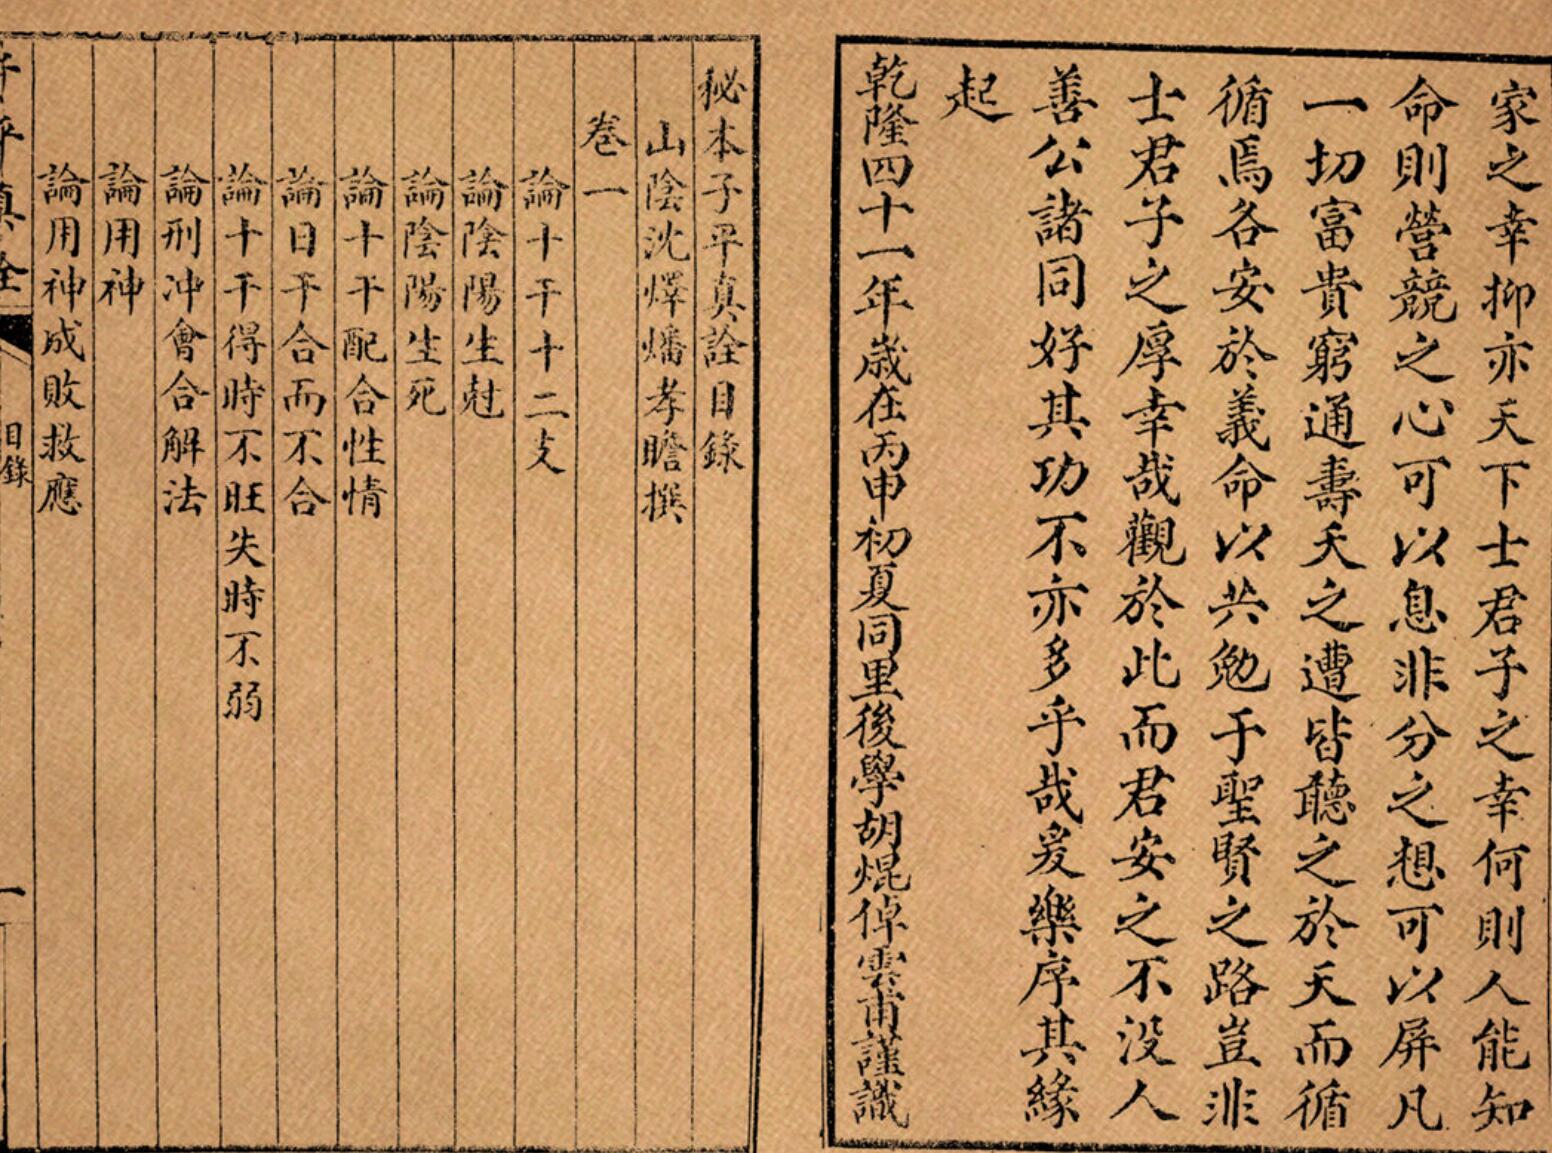 家之幸抑亦天下士君子之幸何則人能知
命則營競之心可以息非分之想可以屏凡
一切富貴窮通壽夭之遭皆聽之於天而循
循焉各安於義命以共勉于聖賢之路豈非
士君子之厚幸哉觀於此而君安之不没人
善公諸同好其功不亦多乎哉爰樂序其緣
起
乾隆四十一年歲在丙申初夏同里後學胡焜倬雲甫謹識
秘本子平真詮目錄
山陰沈燡燔孝瞻撰
卷一
論十干十二支
論陰陽生尅
論陰陽生死
論十干配合性情
論日干合而不合
論十干得時不旺失時不弱
論刑冲會合解法
論用神
論用神成敗救應
子平真詮
目錄
一